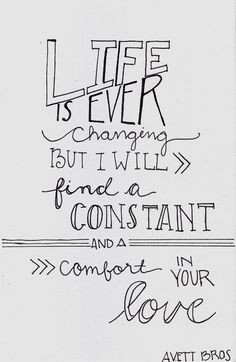 LIFE
IS EVER
changing
BUT I WILL
find a
CONSTANT
AND A
comfort IN YOUR
love
AVETT BROS